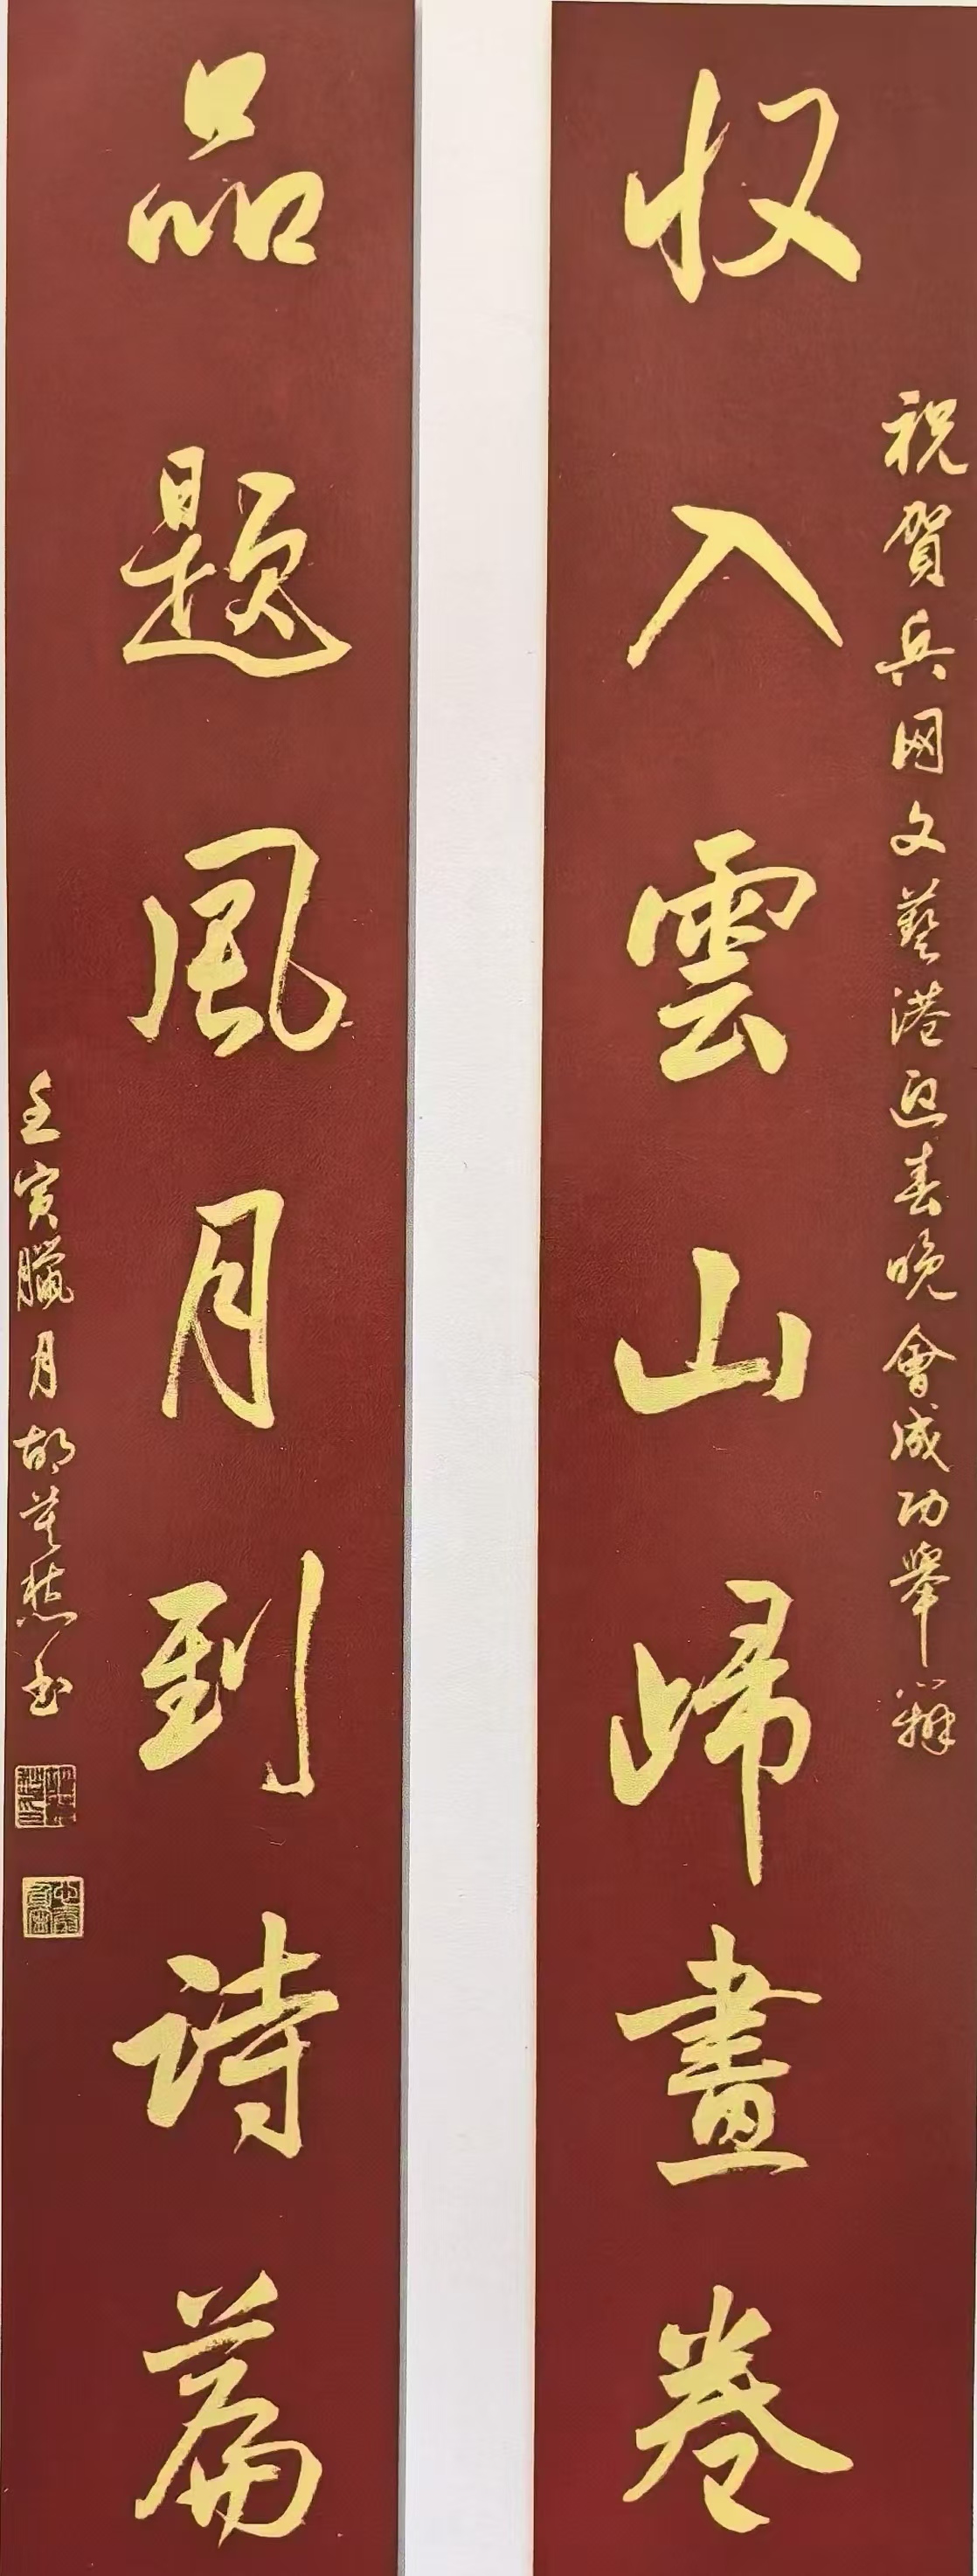 祝賀兵网文藝港迎春晚會成功舉辦
收入雲山歸畫卷
品題風月到詩篇
壬寅臘月胡